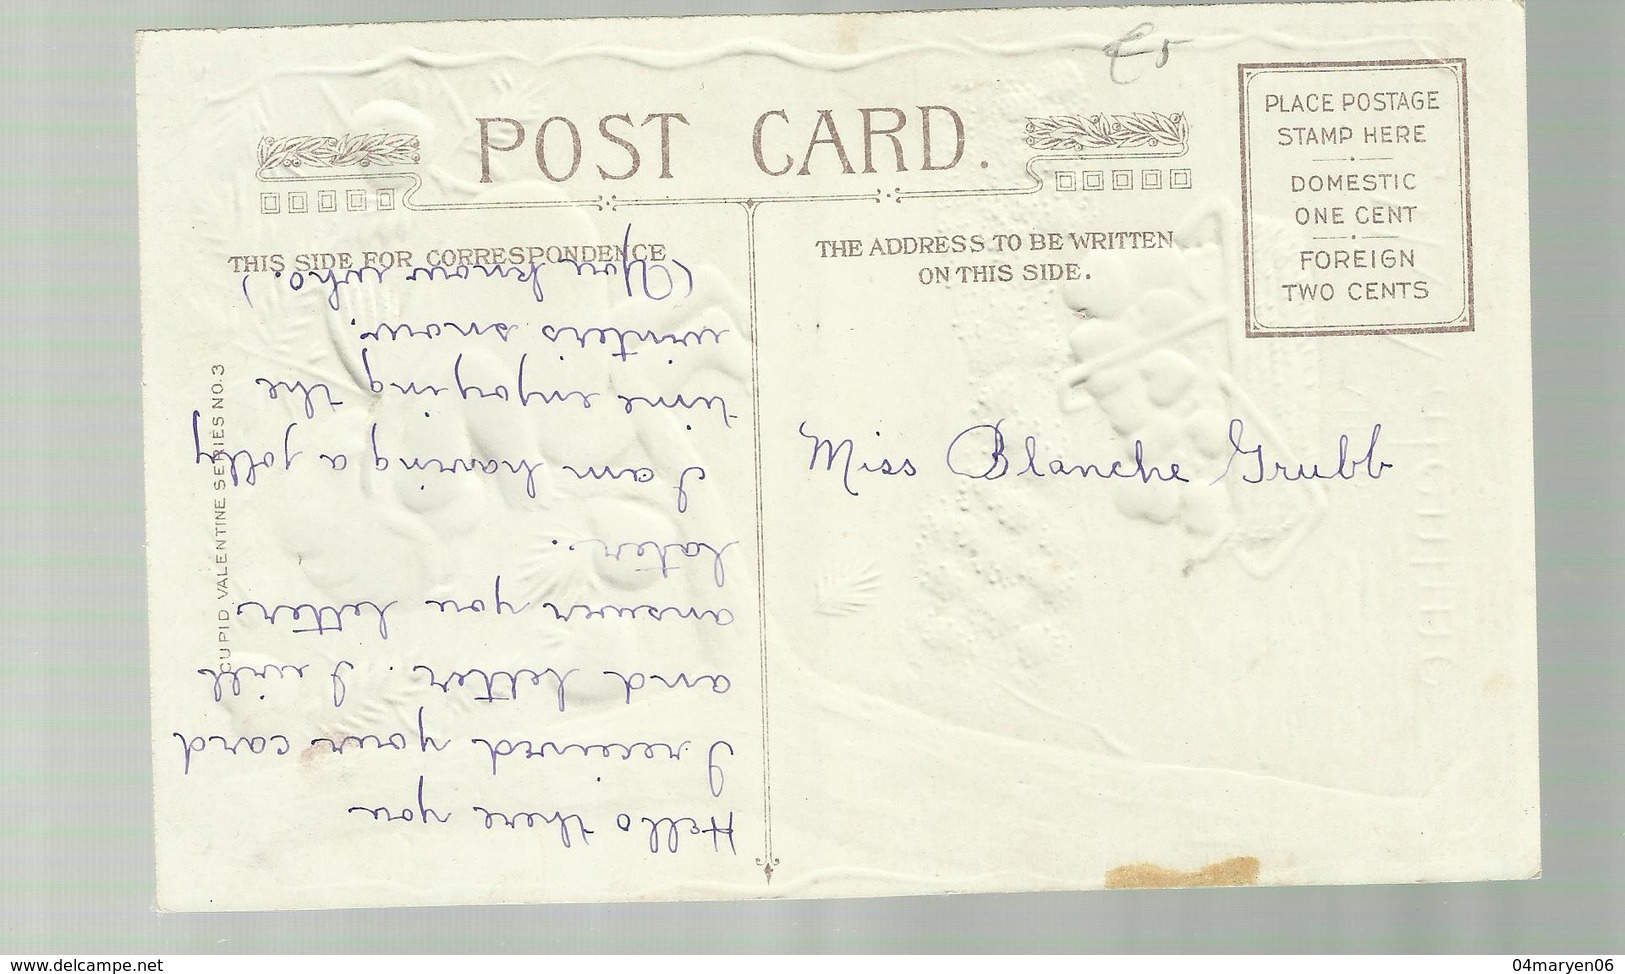 €5
POST CARD.
PLACE POSTAGE
STAMP HERE
DOMESTIC
ONE CENT
FOREIGN
TWO CENTS
THIS SIDE FOR CORRESPONDENCE
THE ADDRESS TO BE WRITTEN
ON THIS SIDE.
CUPID VALENTINE SERIES NO. 3
Hello there you
I received your card
and letter. I will
answer you letter
later.
I am having a jolly
time enjoying the
winters snow.
(You know who.)
Miss Blanche Grubb
www.delcampe.net
04maryen06